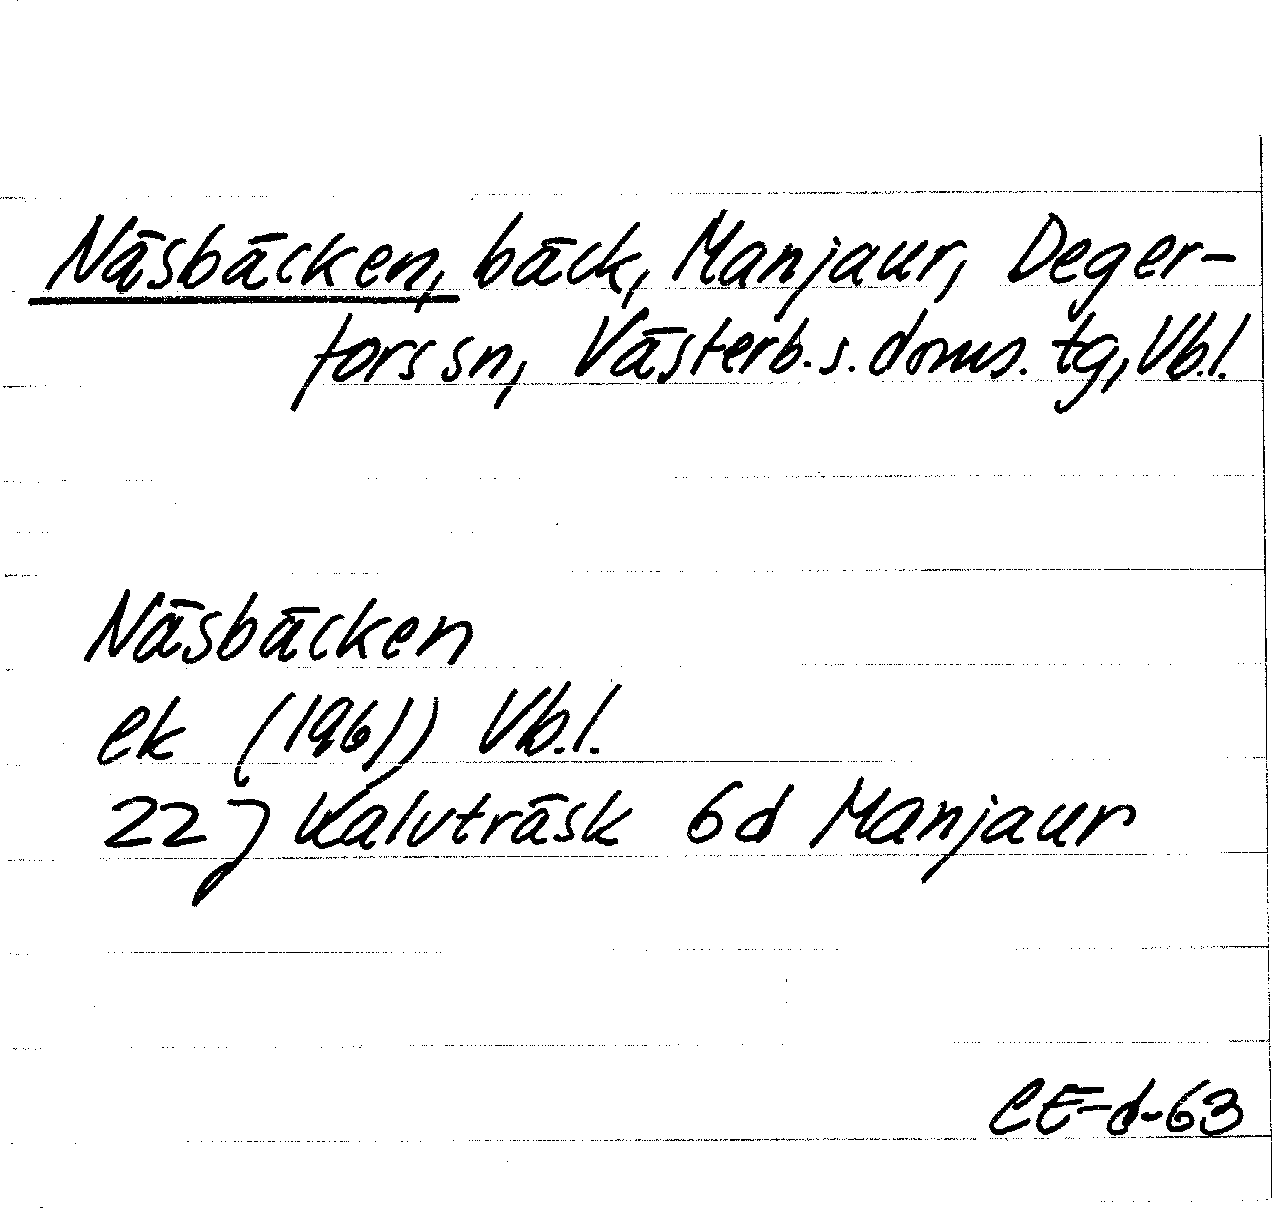 Näsbäcken, bäck, Manjaur, Deger-
fors sn, Västerb. s. doms. tg, Vb.l.
Näsbäcken
ek (1961) Vb.l.
22 J Kalvträsk 6d Manjaur
CE-d-63